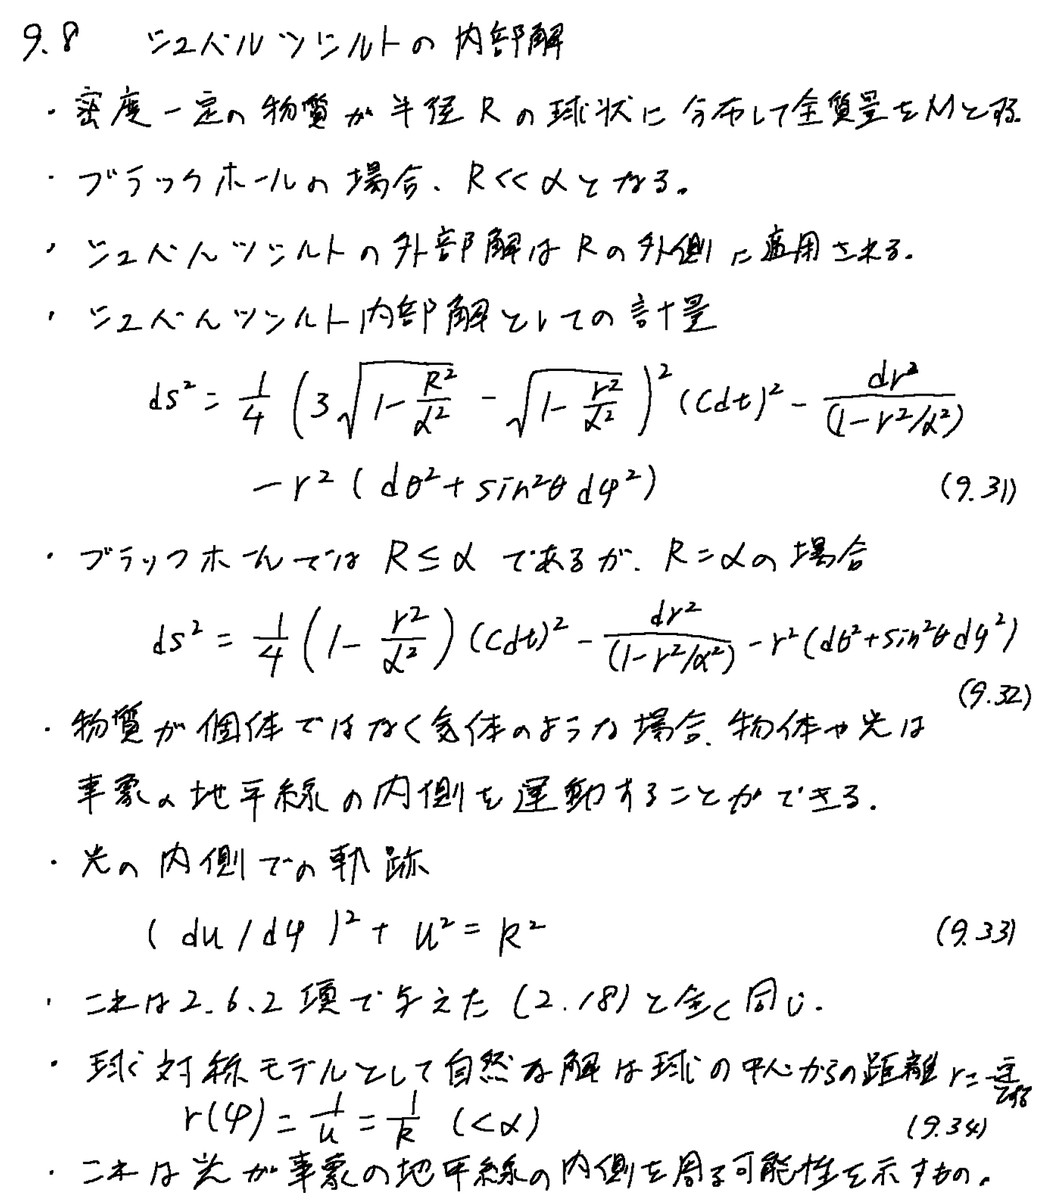 9.8 シュバルツシルトの内部解
・密度一定の物質が半径Rの球状に分布して全質量をMとする.
・ブラックホールの場合、R<<αとなる。
・シュバルツシルトの外部解はRの外側に適用される.
・シュバルツシルト内部解としての計量
ds² = 1/4 (3√(1-R²/α²) - √(1-r²/α²))² (cdt)² - dr²/(1-r²/α²)
-r² (dθ²+sin²θdφ²) (9.31)
・ブラックホールではR≤αであるが、R=αの場合
ds² = 1/4 (1 - r²/α²) (cdt)² - dr²/(1-r²/α²) - r²(dθ²+sin²θdφ²)
(9.32)
・物質が個体ではなく気体のような場合、物体や光は
事象の地平線の内側を運動することができる.
・光の内側での軌跡
(du/dφ)² + u² = k² (9.33)
・これは2.6.2項で与えた(2.18)と全く同じ.
・球対称モデルとして自然な解は球の中心からの距離r=一定である
r(φ) = 1/u = 1/k (<α) (9.34)
・これは光が事象の地平線の内側を周る可能性を示すもの。